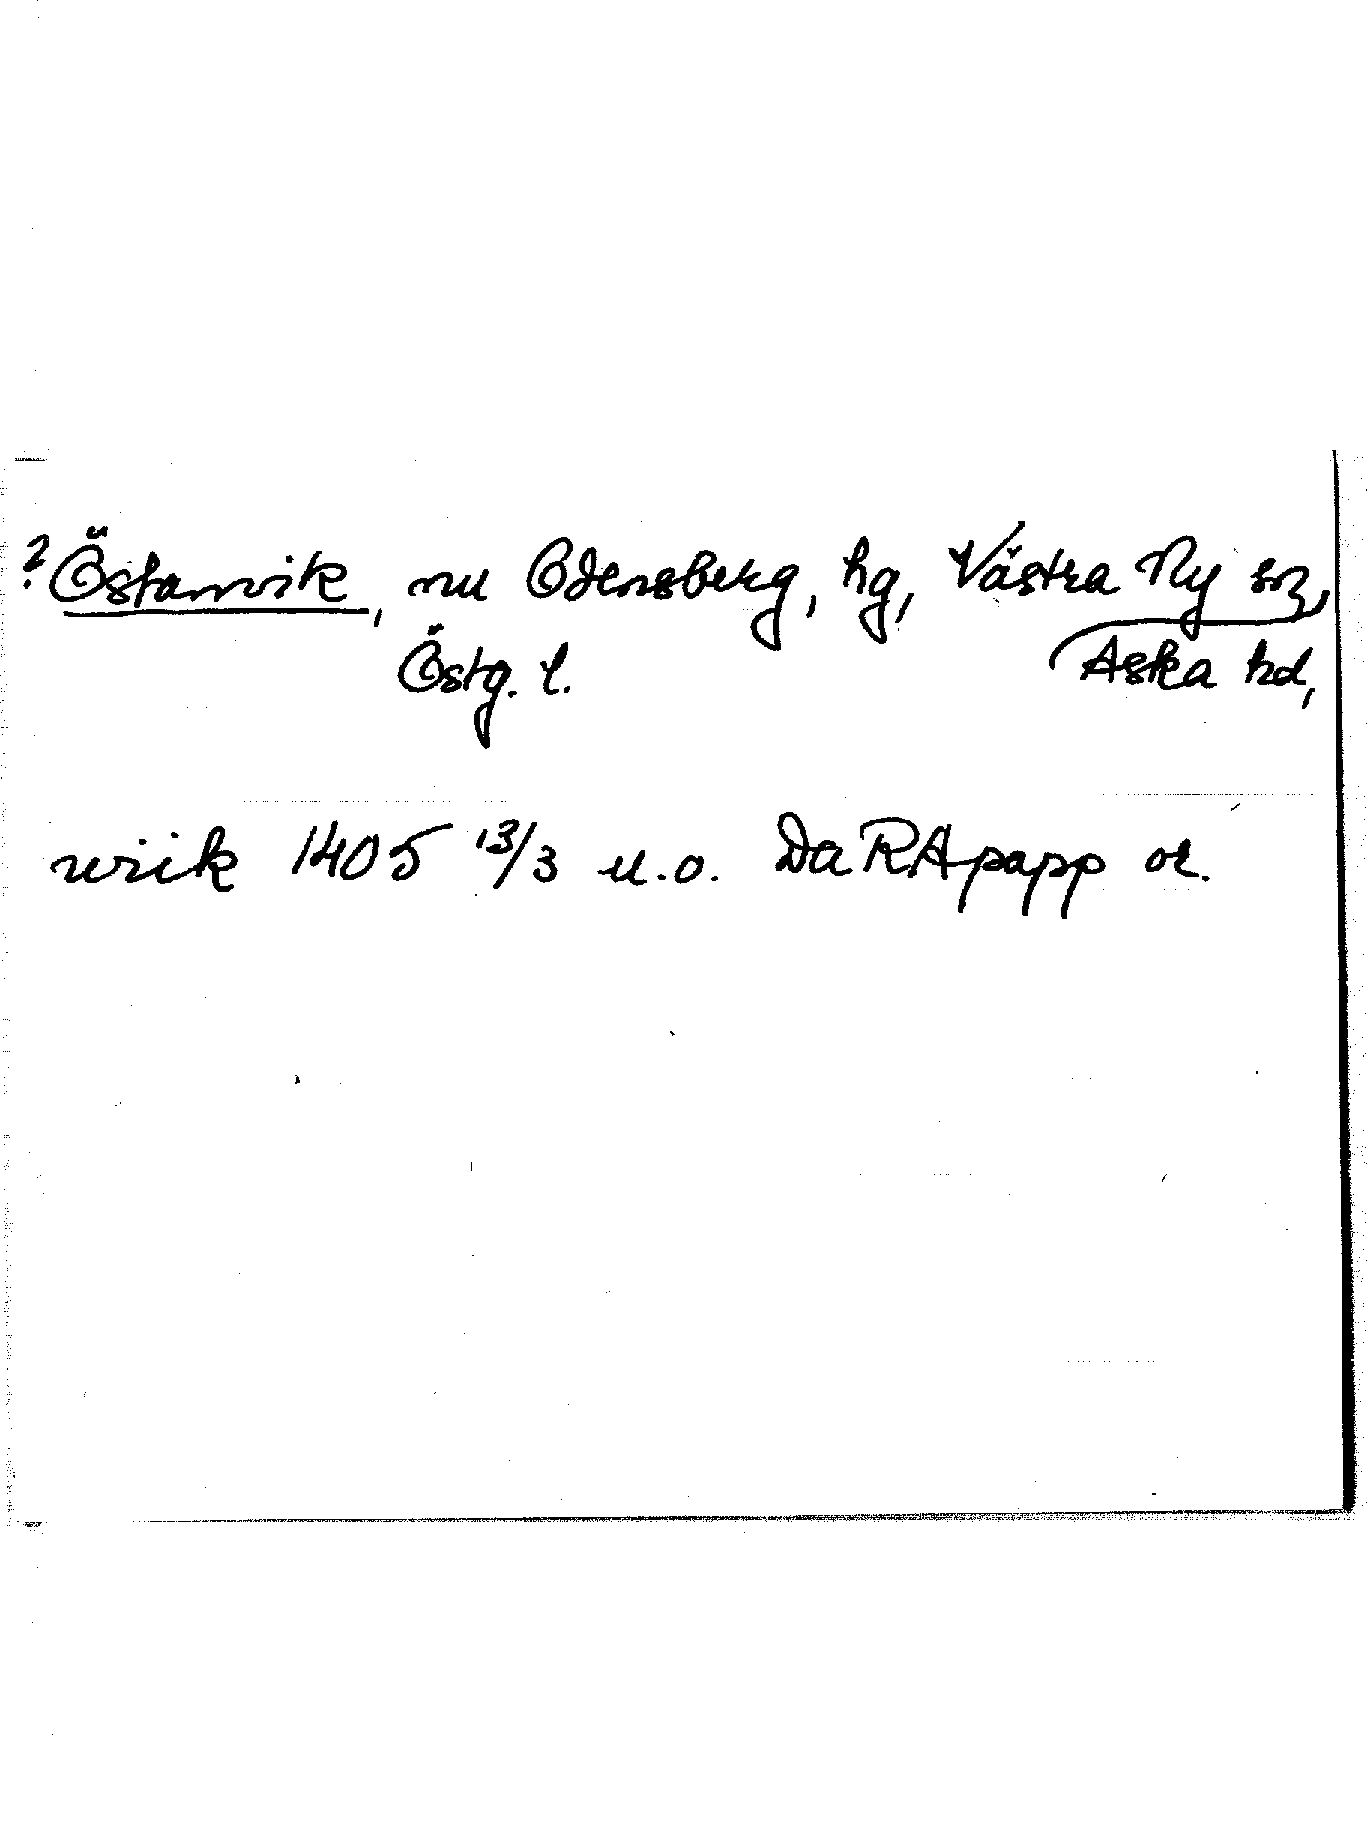 ? Östanvik, nu Odensberg, hg, Västra Ny sn,
Östg. l. Aska hd,
wiik 1405 13/3 u.o. Da RApapp or.